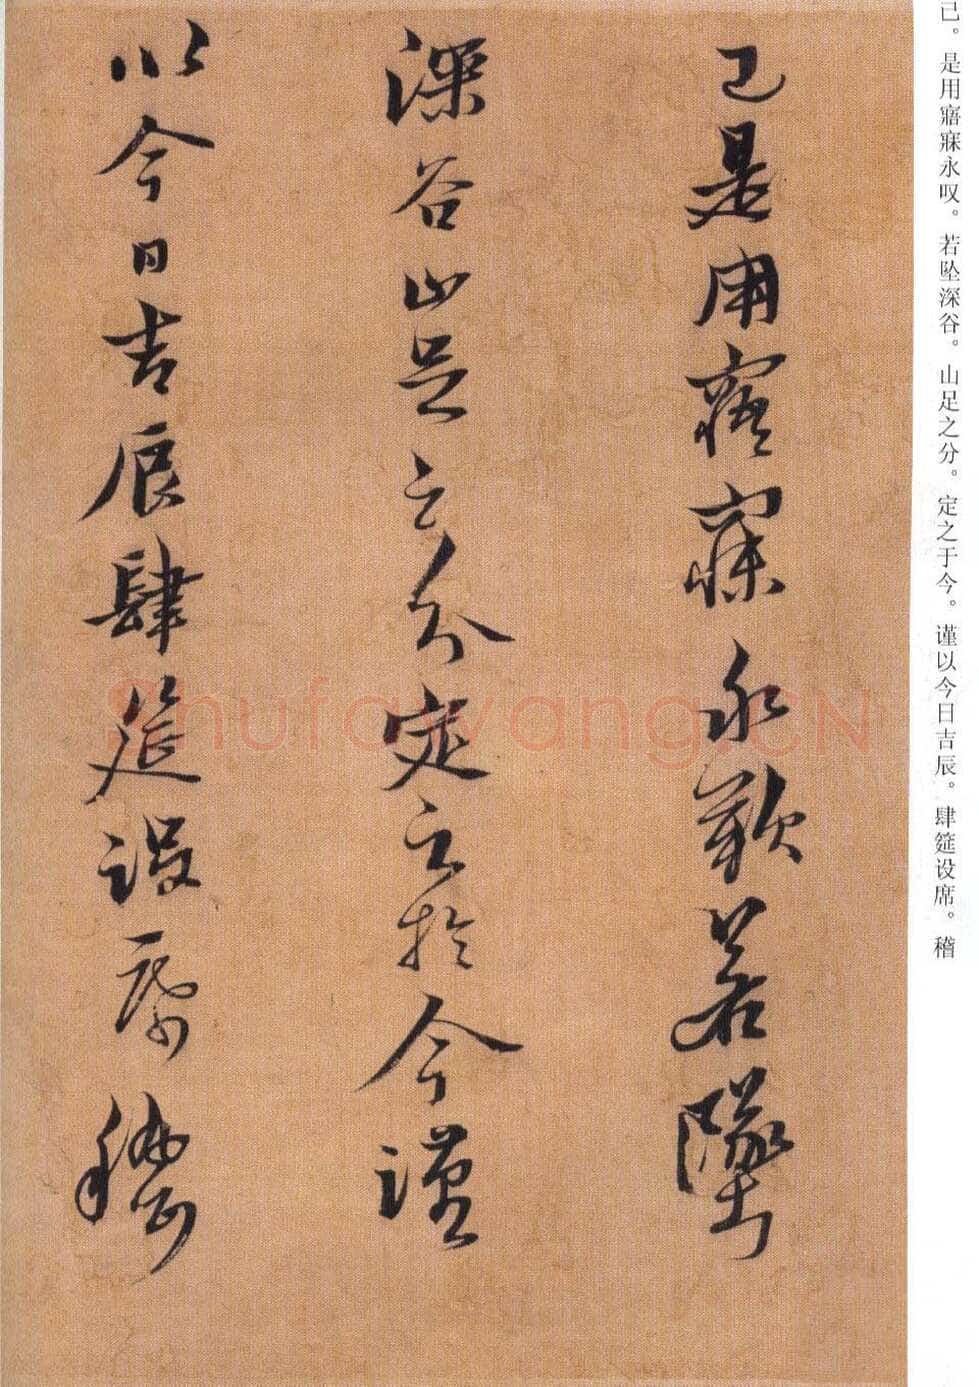 己。是用寤寐永叹。若坠深谷。山足之分。定之于今。谨以今日吉辰。肆筵设席。稽
己是用寤寐永歎若墜
深谷山足之分定之於今謹
以今日吉辰肆筵設席稽
Shufawang.CN